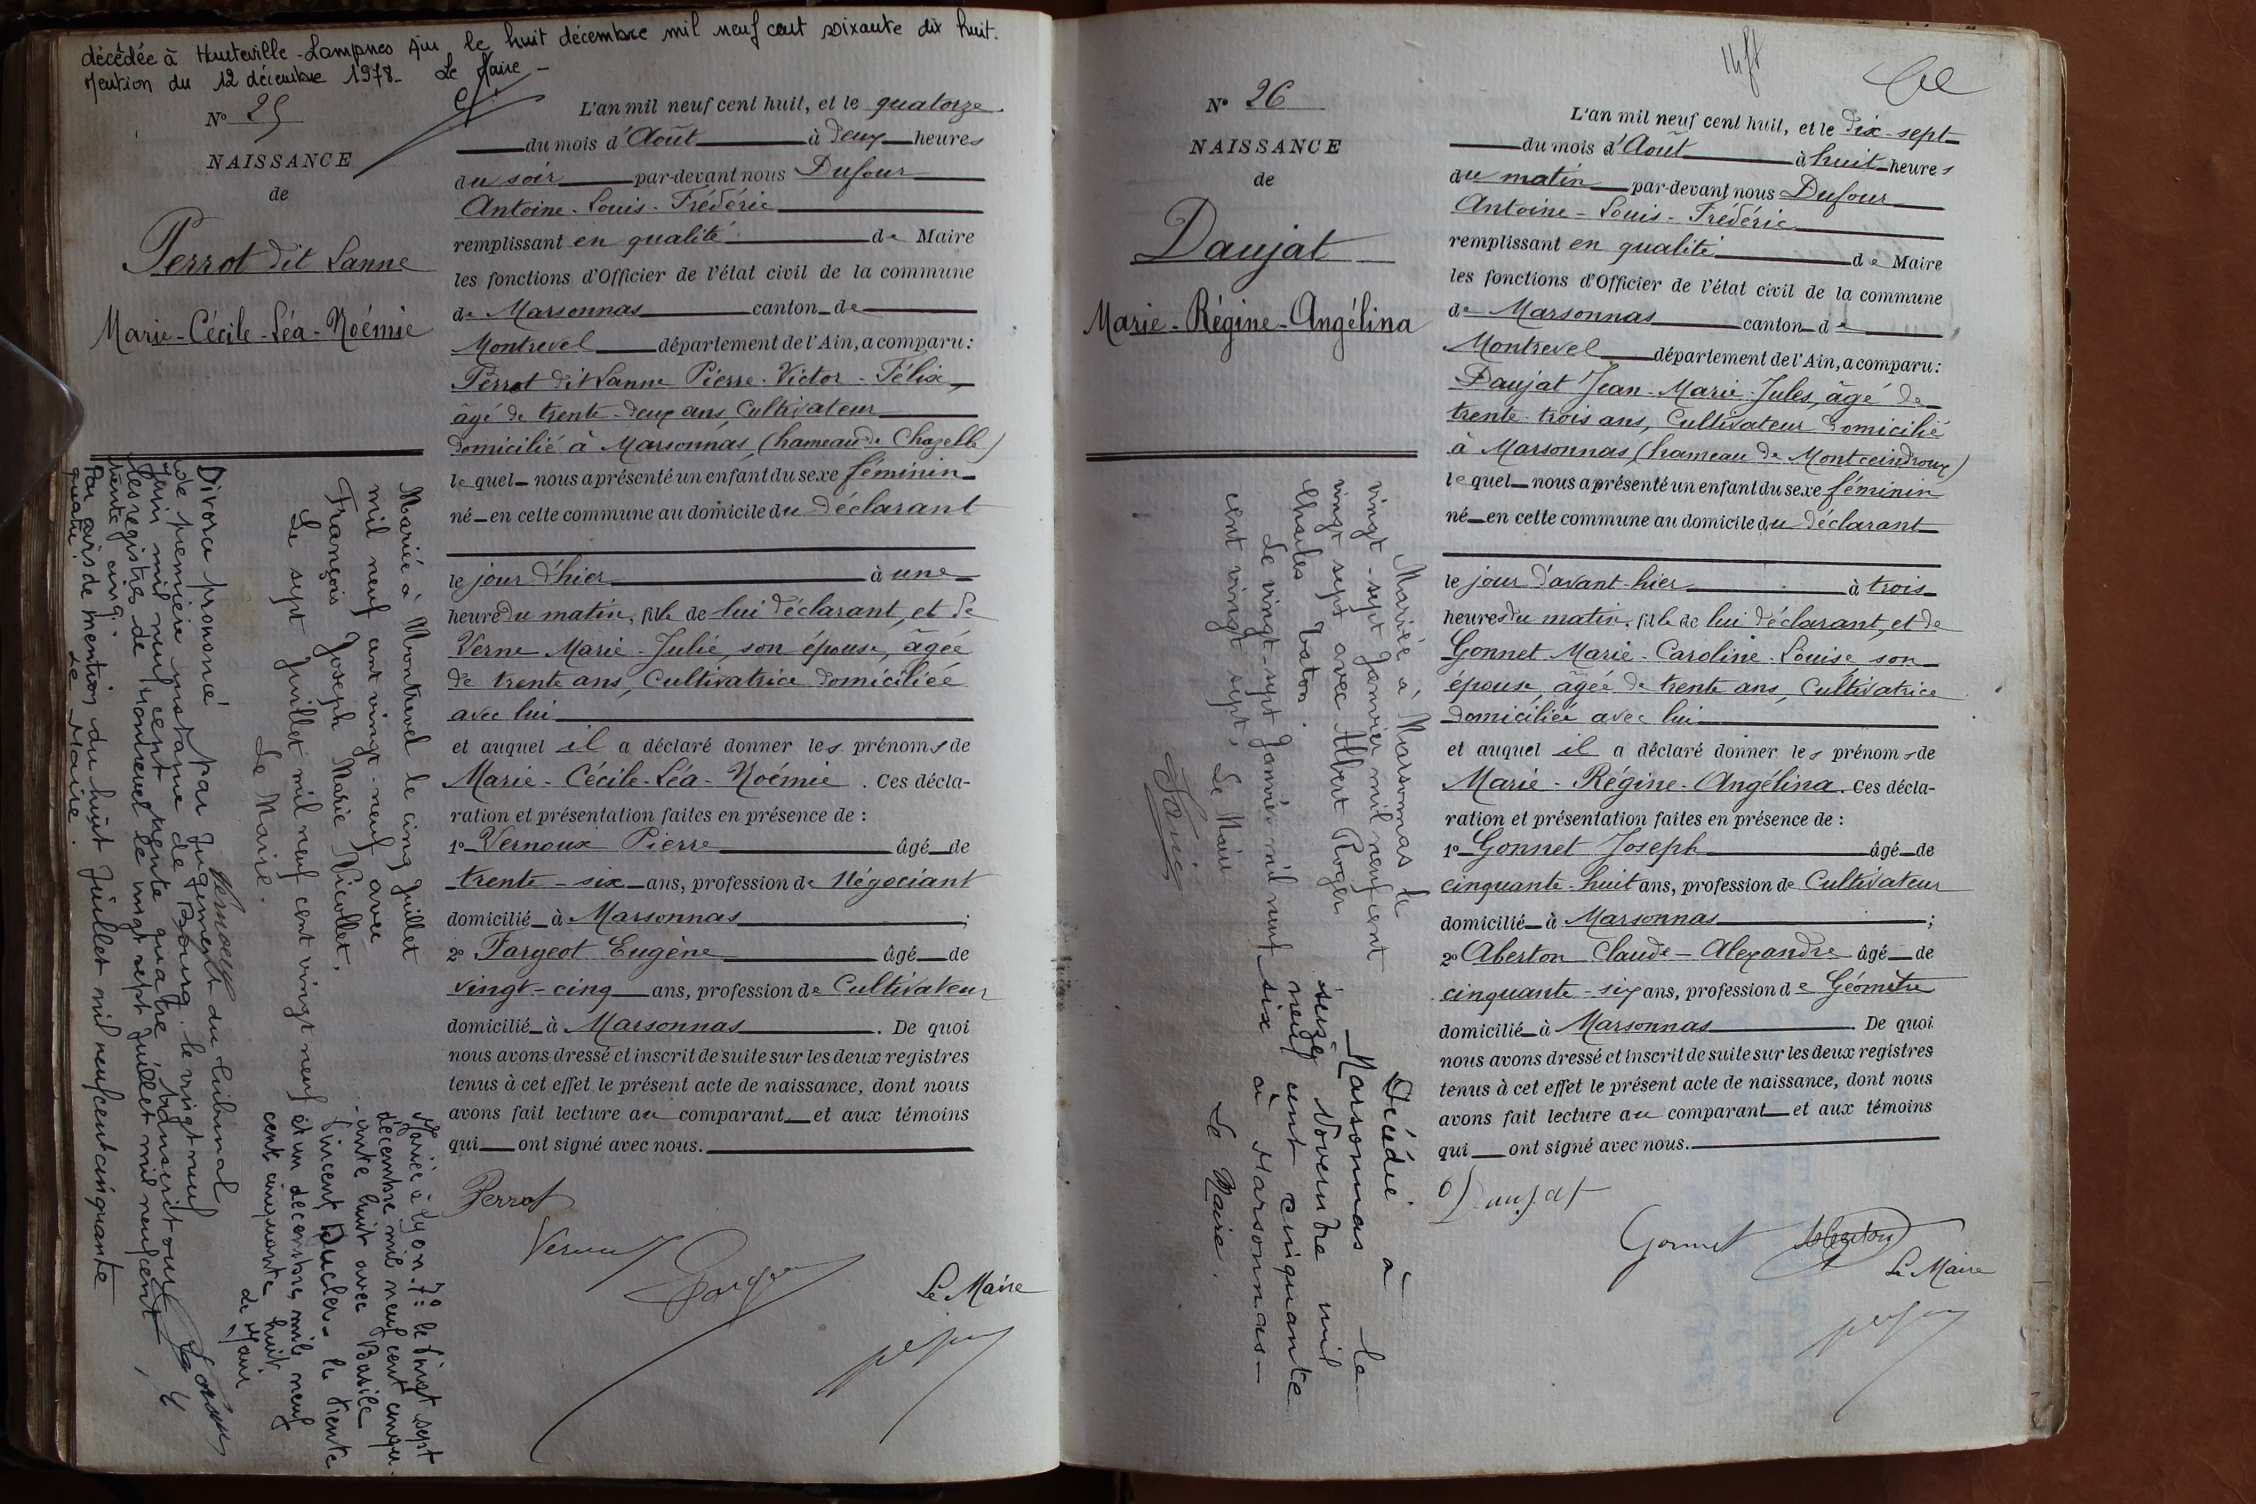 décédée à Hauteville-Lompnes Ain le huit décembre mil neuf cent soixante dix huit.
Mention du 12 décembre 1978 - Le Maire -
N° 25
NAISSANCE
de
Perrot dit Lanne
Marie-Cécile-Léa-Noémie
Mariée à Montrevel le cinq Juillet
mil neuf cent vingt-neuf avec
François Joseph Marie Nicollet,
Le sept Juillet mil neuf cent vingt neuf
Le Maire.
Divorce prononcé par Jugement du tribunal
de première instance de Bourg le vingt neuf
Juin mil neuf cent trente quatre transcrit sur
les registres de Montrevel le vingt sept Juillet mil neuf cent
trente cinq.
Par avis de mention du huit Juillet mil neuf cent cinquante
quatre. Le Maire.
Mariée à Lyon 7e le vingt sept
décembre mil neuf cent cinqu-
-ante huit avec Basile
Vincent Duclos - le trente
et un décembre mil neuf
cent cinquante huit
Le Maire
L'an mil neuf cent huit, et le quatorze
du mois d'Août à deux heures
du soir par-devant nous Dufour
Antoine-Louis-Frédéric
remplissant en qualité de Maire
les fonctions d'Officier de l'état civil de la commune
de Marsonnas canton de
Montrevel département de l'Ain, a comparu :
Perrot dit Lanne Pierre-Victor-Félix,
âgé de trente-deux ans, Cultivateur
domicilié à Marsonnas, (hameau de Chazelle)
lequel nous a présenté un enfant du sexe féminin
né en cette commune au domicile du déclarant
le jour d'hier à une
heure du matin, fille de lui déclarant, et de
Verne Marie-Julie, son épouse, âgée
de trente ans, Cultivatrice domiciliée
avec lui
et auquel il a déclaré donner les prénoms de
Marie-Cécile-Léa-Noémie. Ces décla-
ration et présentation faites en présence de :
1° Vernoux Pierre âgé de
trente-six ans, profession de Négociant
domicilié à Marsonnas ;
2° Fargeot Eugène âgé de
vingt-cinq ans, profession de Cultivateur
domicilié à Marsonnas. De quoi
nous avons dressé et inscrit de suite sur les deux registres
tenus à cet effet le présent acte de naissance, dont nous
avons fait lecture au comparant et aux témoins
qui ont signé avec nous.
Perrot
Vernoux
Le Maire
N° 26
NAISSANCE
de
Daujat
Marie-Régine-Angélina
Mariée à Marsonnas le
vingt-sept Janvier mil neuf cent
vingt sept avec Albert Roger
Charles Baton.
Le vingt-sept Janvier mil neuf
cent vingt sept, Le Maire
Décédée à
Marsonnas le
seize Novembre mil
neuf cent cinquante
six à Marsonnas -
Le Maire.
L'an mil neuf cent huit, et le dix-sept
du mois d'Août à huit heures
du matin par-devant nous Dufour
Antoine-Louis-Frédéric
remplissant en qualité de Maire
les fonctions d'Officier de l'état civil de la commune
de Marsonnas canton de
Montrevel département de l'Ain, a comparu :
Daujat Jean-Marie-Jules, âgé de
trente-trois ans, Cultivateur domicilié
à Marsonnas (hameau de Montceindroux)
lequel nous a présenté un enfant du sexe féminin
né en cette commune au domicile du déclarant
le jour d'avant-hier à trois
heures du matin, fille de lui déclarant, et de
Gonnet Marie-Caroline-Louise, son
épouse, âgée de trente ans, Cultivatrice
domiciliée avec lui
et auquel il a déclaré donner les prénoms de
Marie-Régine-Angélina. Ces décla-
ration et présentation faites en présence de :
1° Gonnet Joseph âgé de
cinquante-huit ans, profession de Cultivateur
domicilié à Marsonnas ;
2° Aberton Claude-Alexandre âgé de
cinquante-six ans, profession de Géomètre
domicilié à Marsonnas. De quoi
nous avons dressé et inscrit de suite sur les deux registres
tenus à cet effet le présent acte de naissance, dont nous
avons fait lecture au comparant et aux témoins
qui ont signé avec nous.
Daujat
Gonnet Aberton
Le Maire